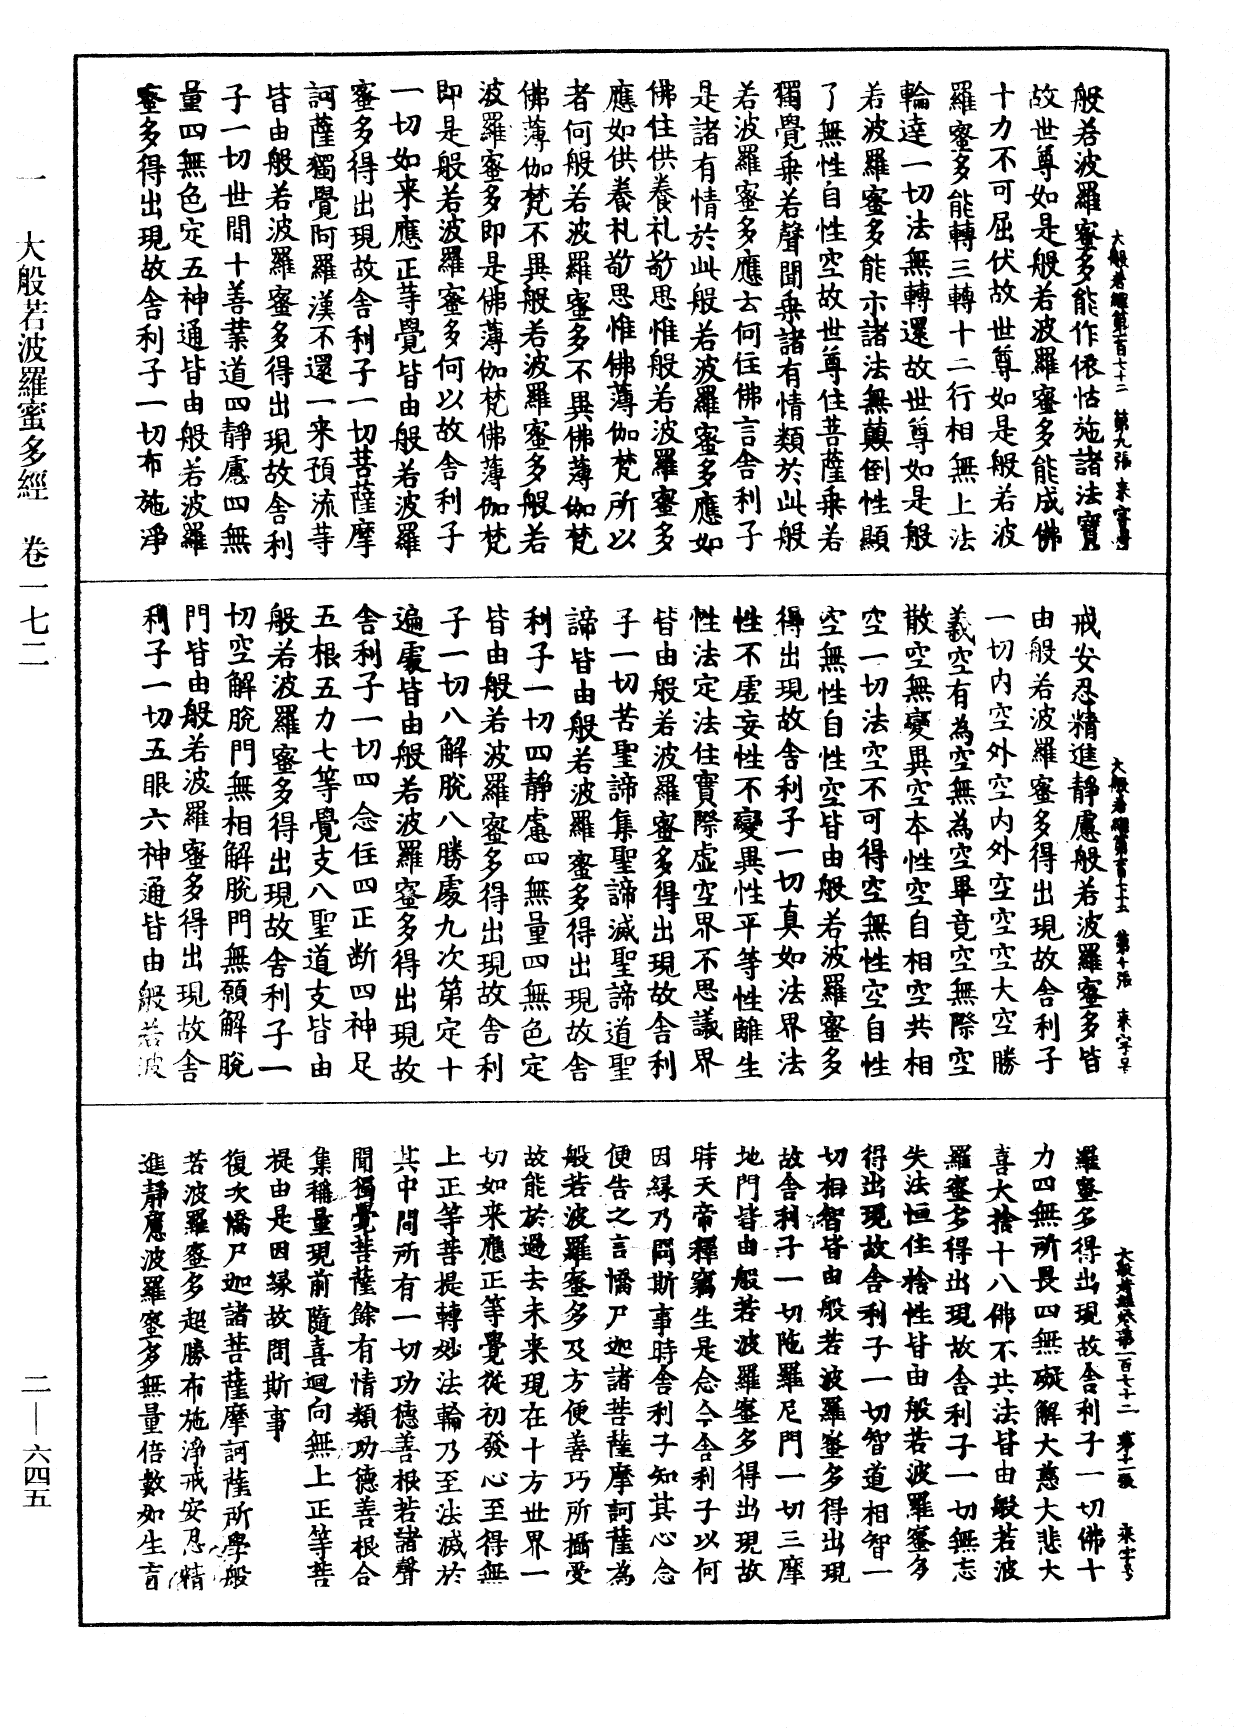 大般若經第一百七十二 第九張 來字号
般若波羅蜜多能作依怙施諸法寶
故世尊如是般若波羅蜜多能成佛
十力不可屈伏故世尊如是般若波
羅蜜多能轉三轉十二行相無上法
輪達一切法無轉還故世尊如是般
若波羅蜜多能示諸法無顛倒性顯
了無性自性空故世尊住菩薩乘若
獨覺乘若聲聞乘諸有情類於此般
若波羅蜜多應云何住佛言舍利子
是諸有情於此般若波羅蜜多應如
佛住供養礼敬思惟般若波羅蜜多
應如供養礼敬思惟佛薄伽梵所以
者何般若波羅蜜多不異佛薄伽梵
佛薄伽梵不異般若波羅蜜多般若
波羅蜜多即是佛薄伽梵佛薄伽梵
即是般若波羅蜜多何以故舍利子
一切如來應正等覺皆由般若波羅
蜜多得出現故舍利子一切菩薩摩
訶薩獨覺阿羅漢不還一來預流等
皆由般若波羅蜜多得出現故舍利
子一切世間十善業道四靜慮四無
量四無色定五神通皆由般若波羅
蜜多得出現故舍利子一切布施淨
大般若經第一百七十二 第十張 來字号
戒安忍精進靜慮般若波羅蜜多皆
由般若波羅蜜多得出現故舍利子
一切內空外空內外空空空大空勝
義空有為空無為空畢竟空無際空
散空無變異空本性空自相空共相
空一切法空不可得空無性空自性
空無性自性空皆由般若波羅蜜多
得出現故舍利子一切真如法界法
性不虛妄性不變異性平等性離生
性法定法住實際虛空界不思議界
皆由般若波羅蜜多得出現故舍利
子一切苦聖諦集聖諦滅聖諦道聖
諦皆由般若波羅蜜多得出現故舍
利子一切四靜慮四無量四無色定
皆由般若波羅蜜多得出現故舍利
子一切八解脫八勝處九次第定十
遍處皆由般若波羅蜜多得出現故
舍利子一切四念住四正斷四神足
五根五力七等覺支八聖道支皆由
般若波羅蜜多得出現故舍利子一
切空解脫門無相解脫門無願解脫
門皆由般若波羅蜜多得出現故舍
利子一切五眼六神通皆由般若波
大般若經卷第一百七十二 第十一張 來字号
羅蜜多得出現故舍利子一切佛十
力四無所畏四無礙解大慈大悲大
喜大捨十八佛不共法皆由般若波
羅蜜多得出現故舍利子一切無忘
失法恒住捨性皆由般若波羅蜜多
得出現故舍利子一切智道相智一
切相智皆由般若波羅蜜多得出現
故舍利子一切陁羅尼門一切三摩
地門皆由般若波羅蜜多得出現故
時天帝釋竊生是念今舍利子以何
因緣乃問斯事時舍利子知其心念
便告之言憍尸迦諸菩薩摩訶薩為
般若波羅蜜多及方便善巧所攝受
故能於過去未來現在十方世界一
切如來應正等覺從初發心至得無
上正等菩提轉妙法輪乃至法滅於
其中間所有一切功德善根若諸聲
聞獨覺菩薩餘有情類功德善根合
集稱量現前隨喜迴向無上正等菩
提由是因緣故問斯事
復次憍尸迦諸菩薩摩訶薩所學般
若波羅蜜多超勝布施淨戒安忍精
進靜慮波羅蜜多無量倍數如生盲
一 大般若波羅蜜多經 卷一七二
二—六四五